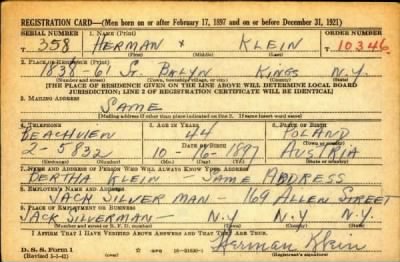 REGISTRATION CARD—(Men born on or after February 17, 1897 and on or before December 31, 1921)
SERIAL NUMBER 1. NAME (Print) ORDER NUMBER
T 358 HERMAN KLEIN 10346
(First) (Middle) (Last)
2. PLACE OF RESIDENCE (Print)
1838-61 ST. BKLYN KINGS N.Y.
(Number and street) (Town, township, village, or city) (County) (State)
[THE PLACE OF RESIDENCE GIVEN ON THE LINE ABOVE WILL DETERMINE LOCAL BOARD
JURISDICTION; LINE 2 OF REGISTRATION CERTIFICATE WILL BE IDENTICAL]
3. MAILING ADDRESS
SAME
[Mailing address if other than place indicated on line 2. If same insert word same]
4. TELEPHONE 5. AGE IN YEARS 6. PLACE OF BIRTH
BEACHVIEW 44 POLAND
DATE OF BIRTH (Town or county)
2-5832 10-16-1897 AUSTRIA
(Exchange) (Number) (Mo.) (Day) (Yr.) (State or country)
7. NAME AND ADDRESS OF PERSON WHO WILL ALWAYS KNOW YOUR ADDRESS
BERTHA KLEIN - SAME ADDRESS
8. EMPLOYER'S NAME AND ADDRESS
JACK SILVERMAN - 169 ALLEN STREET
9. PLACE OF EMPLOYMENT OR BUSINESS
JACK SILVERMAN - N.Y N.Y N.Y.
(Number and street or R. F. D. number) (Town) (County) (State)
I AFFIRM THAT I HAVE VERIFIED ABOVE ANSWERS AND THAT THEY ARE TRUE.
D. S. S. Form 1
(Revised) Herman Klein